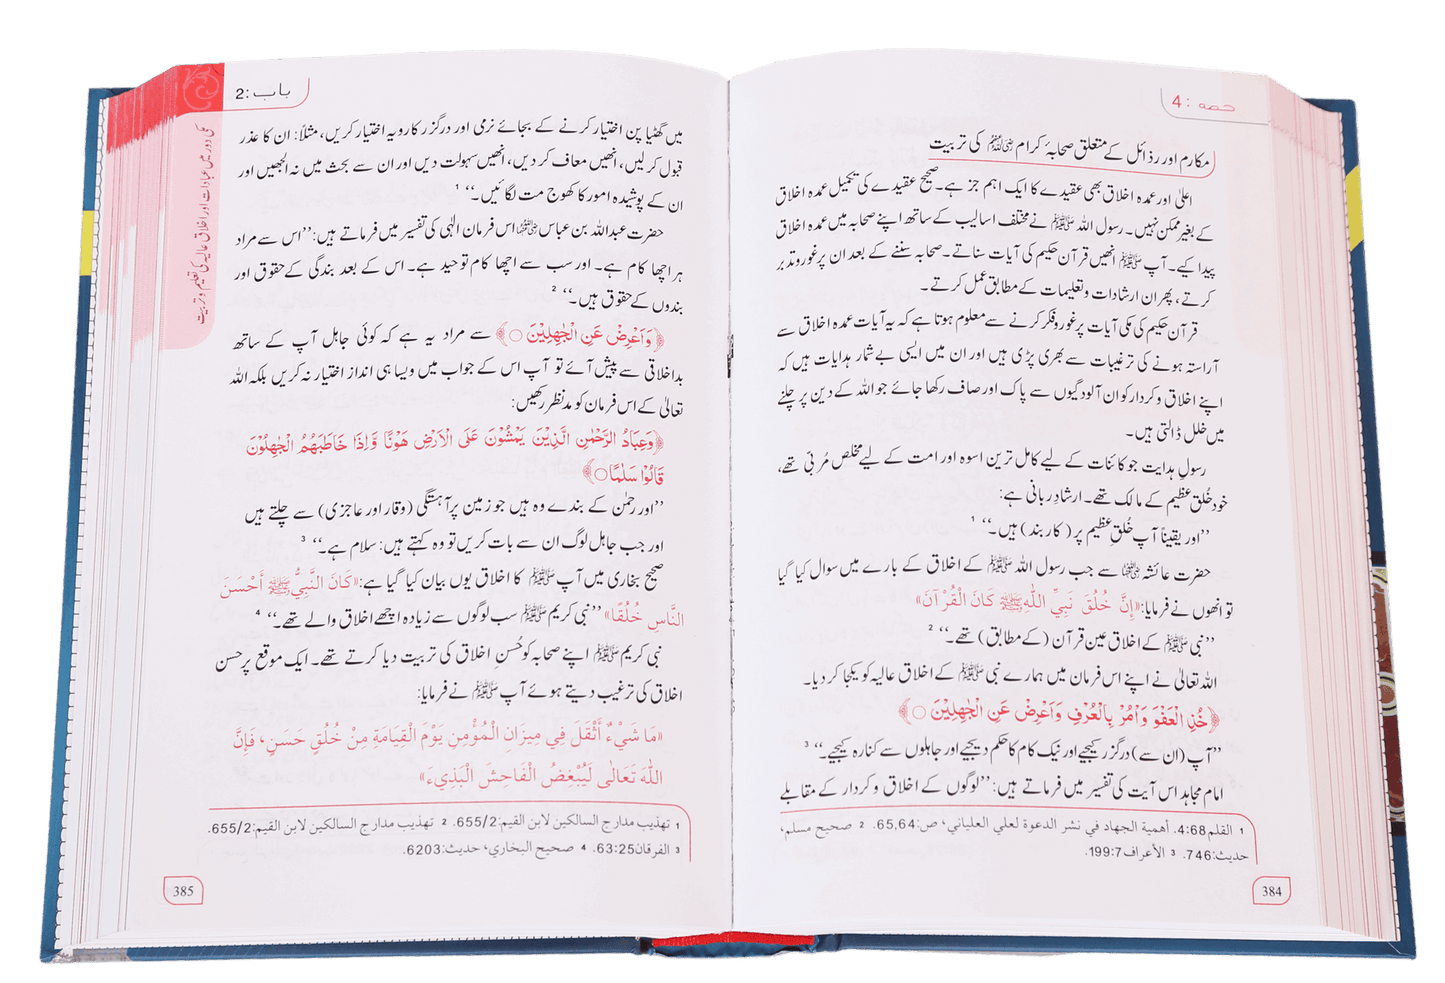 حصہ :4
مکارم اور رذائل کے متعلق صحابۂ کرام رضی اللہ عنہم کی تربیت
اعلیٰ اور عمدہ اخلاق بھی عقیدے کا ایک اہم جز ہے۔ صحیح عقیدے کی تکمیل عمدہ اخلاق
کے بغیر ممکن نہیں۔ رسول اللہ ﷺ نے مختلف اسالیب کے ساتھ اپنے صحابہ میں عمدہ اخلاق
پیدا کیے۔ آپ ﷺ انھیں قرآن حکیم کی آیات سناتے۔ صحابہ سننے کے بعد ان پر غور و تدبر
کرتے، پھر ان ارشادات و تعلیمات کے مطابق عمل کرتے۔
قرآن حکیم کی مکی آیات پر غور و فکر کرنے سے معلوم ہوتا ہے کہ یہ آیات عمدہ اخلاق سے
آراستہ ہونے کی ترغیبات سے بھری پڑی ہیں اور ان میں ایسی بے شمار ہدایات ہیں کہ
اپنے اخلاق و کردار کو ان آلودگیوں سے پاک اور صاف رکھا جائے جو اللہ کے دین پر چلنے
میں خلل ڈالتی ہیں۔
رسولِ ہدایت جو کائنات کے لیے کامل ترین اسوہ اور امت کے لیے مخلص مُربّی تھے،
خود خُلقِ عظیم کے مالک تھے۔ ارشادِ ربانی ہے:
’’اور یقیناً آپ خُلقِ عظیم پر (کاربند) ہیں۔‘‘ 1
حضرت عائشہ رضی اللہ عنہا سے جب رسول اللہ ﷺ کے اخلاق کے بارے میں سوال کیا گیا
تو انھوں نے فرمایا: «إِنَّ خُلُقَ نَبِيِّ اللّٰهِ ﷺ كَانَ الْقُرْآنَ»
’’نبی ﷺ کے اخلاق عین قرآن (کے مطابق) تھے۔‘‘ 2
اللہ تعالیٰ نے اپنے اس فرمان میں ہمارے نبی ﷺ کے اخلاق عالیہ کو یکجا کر دیا۔
﴿خُذِ الْعَفْوَ وَاْمُرْ بِالْعُرْفِ وَاَعْرِضْ عَنِ الْجٰهِلِيْنَ ○﴾
’’آپ (ان سے) درگزر کیجیے اور نیک کام کا حکم دیجیے اور جاہلوں سے کنارہ کیجیے۔‘‘ 3
امام مجاہد اس آیت کی تفسیر میں فرماتے ہیں: ’’لوگوں کے اخلاق و کردار کے مقابلے
1 القلم 4:68. أهمية الجهاد في نشر الدعوة لعلي العلياني، ص:65,64. 2 صحيح مسلم،
حديث:746. 3 الأعراف 199:7.
384
باب :2
مکی دور میں عبادات اور اخلاق عالیہ کی تعلیم و تربیت
میں گھٹیا پن اختیار کرنے کے بجائے نرمی اور درگزر کا رویہ اختیار کریں، مثلاً: ان کا عذر
قبول کر لیں، انھیں معاف کر دیں، انھیں سہولت دیں اور ان سے بحث میں نہ الجھیں اور
ان کے پوشیدہ امور کا کھوج مت لگائیں۔‘‘ 1
حضرت عبداللہ بن عباس رضی اللہ عنہما اس فرمان الٰہی کی تفسیر میں فرماتے ہیں: ’’اس سے مراد
ہر اچھا کام ہے۔ اور سب سے اچھا کام توحید ہے۔ اس کے بعد بندگی کے حقوق اور
بندوں کے حقوق ہیں۔‘‘ 2
﴿وَاَعْرِضْ عَنِ الْجٰهِلِيْنَ ○﴾ سے مراد یہ ہے کہ کوئی جاہل آپ کے ساتھ
بداخلاقی سے پیش آئے تو آپ اس کے جواب میں ویسا ہی انداز اختیار نہ کریں بلکہ اللہ
تعالیٰ کے اس فرمان کو مدنظر رکھیں:
﴿وَعِبَادُ الرَّحْمٰنِ الَّذِيْنَ يَمْشُوْنَ عَلَى الْاَرْضِ هَوْنًا وَّاِذَا خَاطَبَهُمُ الْجٰهِلُوْنَ
قَالُوْا سَلٰمًا ○﴾
’’اور رحمٰن کے بندے وہ ہیں جو زمین پر آہستگی (وقار اور عاجزی) سے چلتے ہیں
اور جب جاہل لوگ ان سے بات کریں تو وہ کہتے ہیں: سلام ہے۔‘‘ 3
صحیح بخاری میں آپ ﷺ کا اخلاق یوں بیان کیا گیا ہے: «كَانَ النَّبِيُّ ﷺ أَحْسَنَ
النَّاسِ خُلُقًا» ’’نبی کریم ﷺ سب لوگوں سے زیادہ اچھے اخلاق والے تھے۔‘‘ 4
نبی کریم ﷺ اپنے صحابہ کو حُسنِ اخلاق کی تربیت دیا کرتے تھے۔ ایک موقع پر حسن
اخلاق کی ترغیب دیتے ہوئے آپ ﷺ نے فرمایا:
«مَا شَيْءٌ أَثْقَلَ فِي مِيزَانِ الْمُؤْمِنِ يَوْمَ الْقِيَامَةِ مِنْ خُلُقٍ حَسَنٍ، فَإِنَّ
اللّٰهَ تَعَالٰى لَيُبْغِضُ الْفَاحِشَ الْبَذِيءَ»
1 تهذيب مدارج السالكين لابن القيم:655/2. 2 تهذيب مدارج السالكين لابن القيم:655/2.
3 الفرقان 63:25. 4 صحيح البخاري، حديث:6203.
385